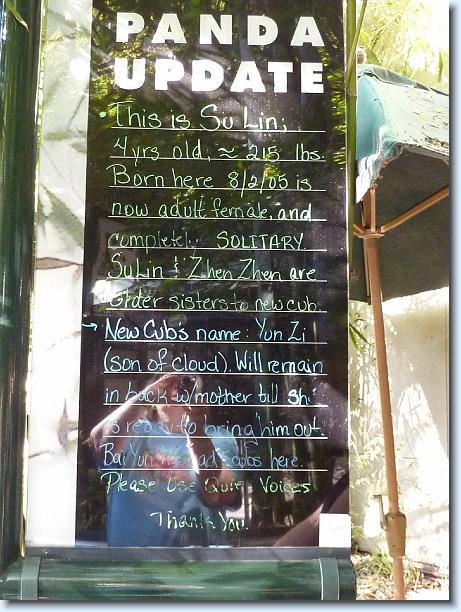 PANDA
UPDATE
This is Su Lin;
4 yrs old, ≈ 215 lbs.
Born here 8/2/05 is
now adult female, and
SOLITARY.
Su Lin & Zhen Zhen are
older sisters to new cub.
→ New Cub's name: Yun Zi
(son of cloud). Will remain
in back w/mother till
is ready to bring him out.
Bai Yun here.
Please Use Quiet Voices
Thank You.